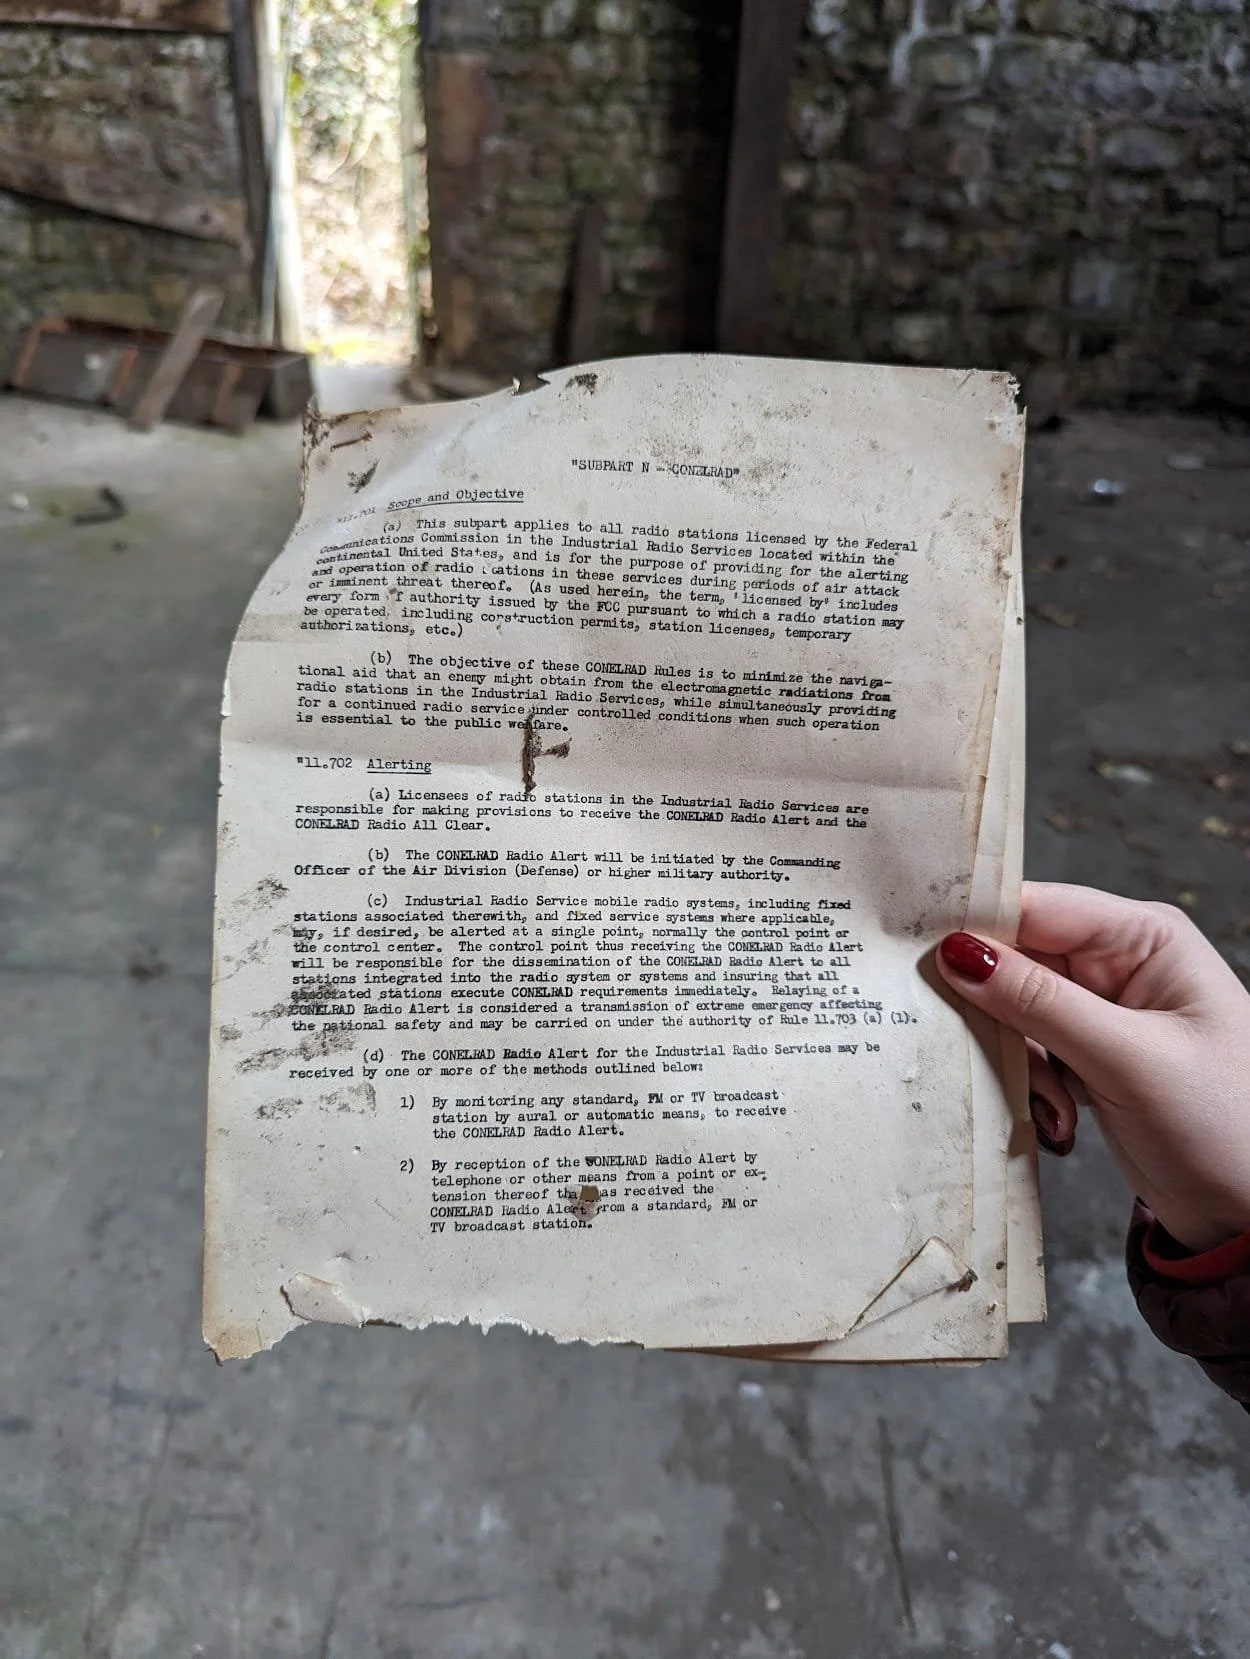 "SUBPART N - CONELRAD"
"11.701 Scope and Objective
(a) This subpart applies to all radio stations licensed by the Federal
Communications Commission in the Industrial Radio Services located within the
continental United States, and is for the purpose of providing for the alerting
and operation of radio stations in these services during periods of air attack
or imminent threat thereof. (As used herein, the term, "licensed by" includes
every form of authority issued by the FCC pursuant to which a radio station may
be operated, including construction permits, station licenses, temporary
authorizations, etc.)
(b) The objective of these CONELRAD Rules is to minimize the naviga-
tional aid that an enemy might obtain from the electromagnetic radiations from
radio stations in the Industrial Radio Services, while simultaneously providing
for a continued radio service under controlled conditions when such operation
is essential to the public welfare.
"11.702 Alerting
(a) Licensees of radio stations in the Industrial Radio Services are
responsible for making provisions to receive the CONELRAD Radio Alert and the
CONELRAD Radio All Clear.
(b) The CONELRAD Radio Alert will be initiated by the Commanding
Officer of the Air Division (Defense) or higher military authority.
(c) Industrial Radio Service mobile radio systems, including fixed
stations associated therewith, and fixed service systems where applicable,
may, if desired, be alerted at a single point, normally the control point or
the control center. The control point thus receiving the CONELRAD Radio Alert
will be responsible for the dissemination of the CONELRAD Radio Alert to all
stations integrated into the radio system or systems and insuring that all
associated stations execute CONELRAD requirements immediately. Relaying of a
CONELRAD Radio Alert is considered a transmission of extreme emergency affecting
the national safety and may be carried on under the authority of Rule 11.703 (a) (1).
(d) The CONELRAD Radio Alert for the Industrial Radio Services may be
received by one or more of the methods outlined below:
1) By monitoring any standard, FM or TV broadcast
station by aural or automatic means, to receive
the CONELRAD Radio Alert.
2) By reception of the CONELRAD Radio Alert by
telephone or other means from a point or ex-
tension thereof as received the
CONELRAD Radio Alert from a standard, FM or
TV broadcast station.